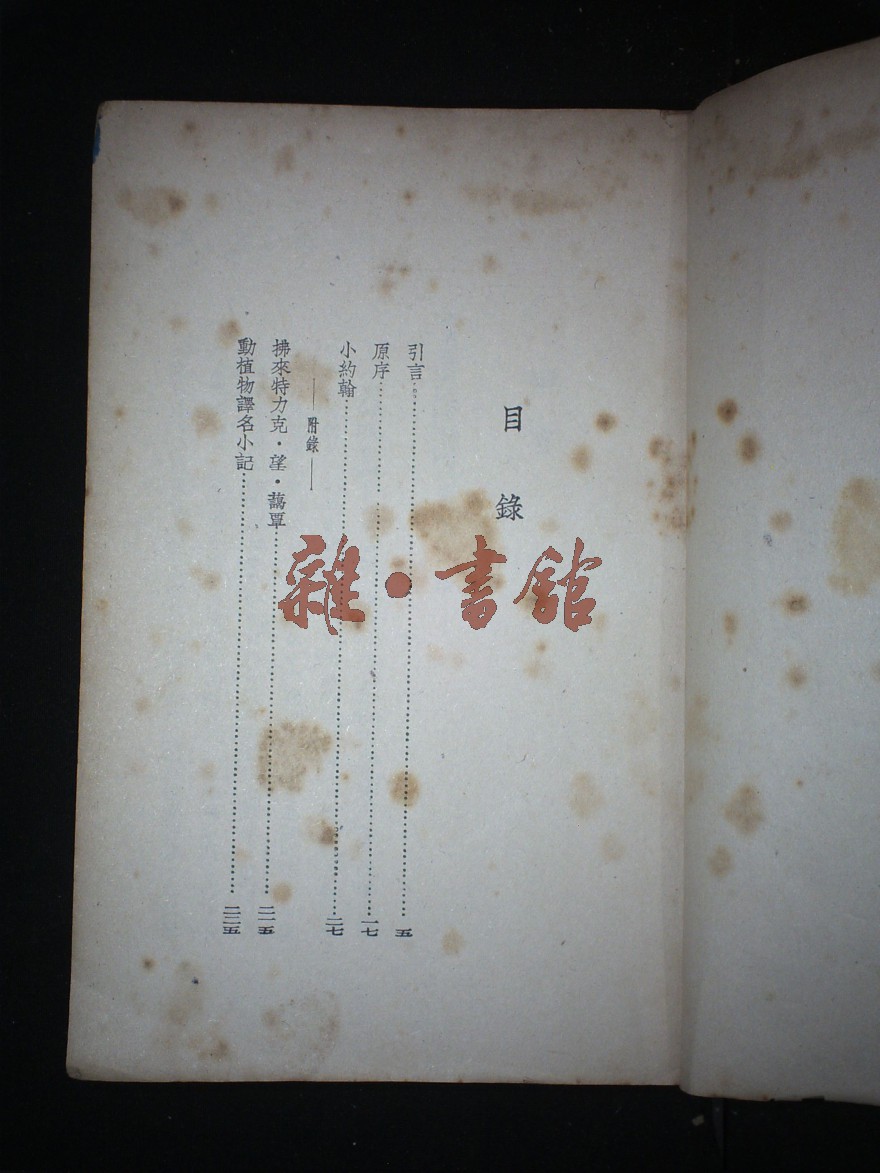 目錄
引言 五
原序 一七
小約翰 二七
——附錄——
拂來特力克·望·藹覃 二一五
動植物譯名小記 二二五
雜·書舘